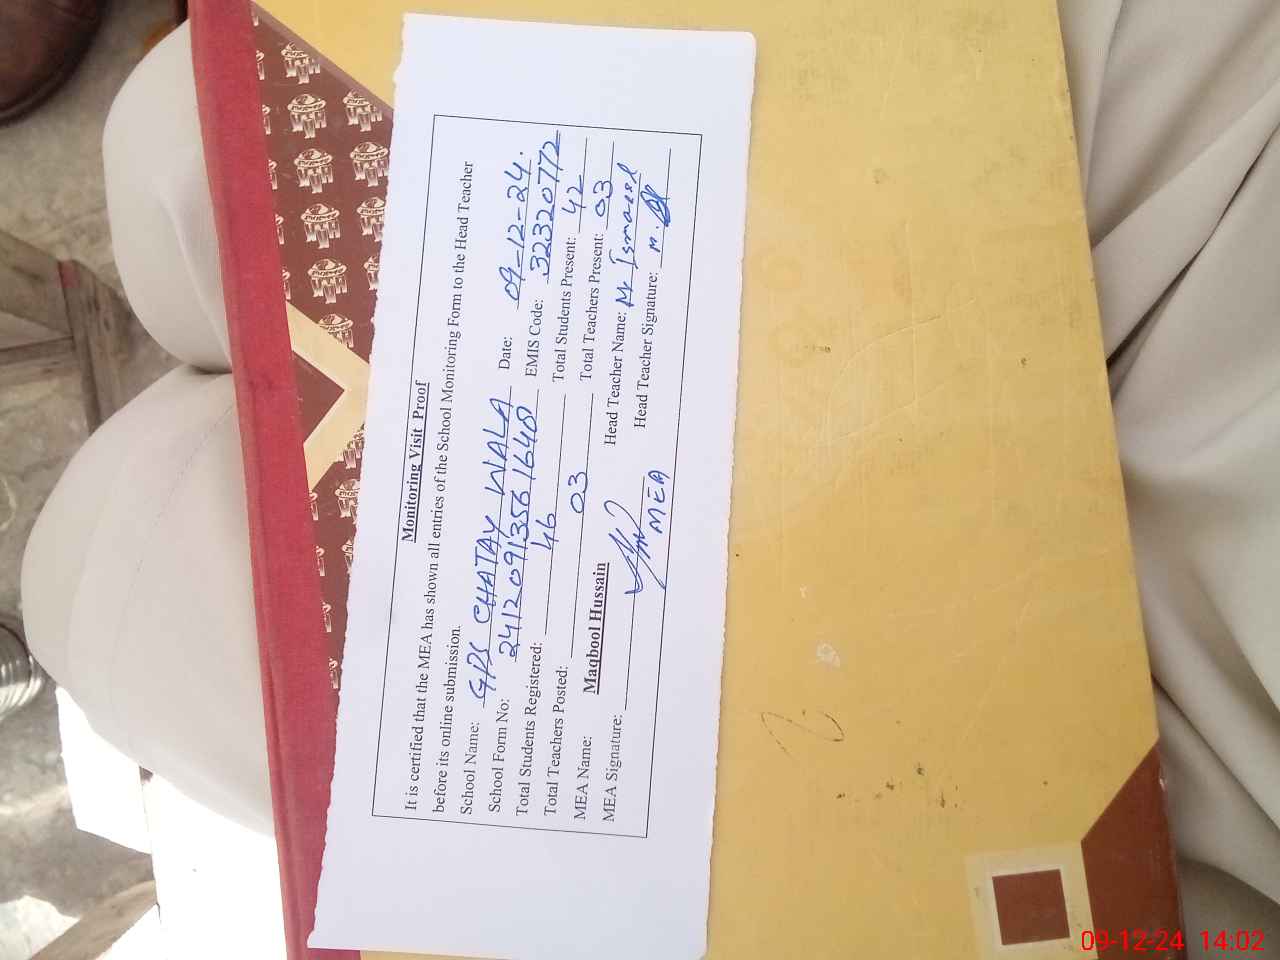 Monitoring Visit Proof
It is certified that the MEA has shown all entries of the School Monitoring Form to the Head Teacher
before its online submission.
School Name: GPS CHATAY WALA Date: 09-12-24.
School Form No: 24120913561648 EMIS Code: 32320772
Total Students Registered: 46 Total Students Present: 42
Total Teachers Posted: 03 Total Teachers Present: 03
MEA Name: Maqbool Hussain Head Teacher Name: Mr Ismaeel
MEA Signature: Head Teacher Signature:
MEA
09-12-24 14:02